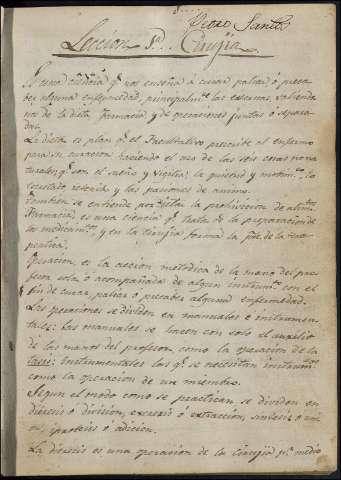 Pedro Santa
Leccion 1ª. Cirujia
Es una ciencia q.e nos enseña à curar, paliar, ó preca
ber alguna enfermedad, principalm.te las externas, valiendo
nos de la dieta, farmacia y de operaciones juntas ó separa
das.
La dieta es plan q.e el Facultativo prescribe al enfermo
para su curacion haciendo el uso de las seis cosas no na
turales q.e son el sueño y vigilia; la quietud y movim.to, lo
escretado, y retenido y las pasiones de animo.
Tambien se entiende por dieta la prohivicion de alim.tos
Farmacia, es una ciencia q.e trata de la preparacion de
los medicam.tos, y en la cirujia forma la p.te de la tera
peutica.
Operacion, es la accion metodica de la mano del pro
fesor sola ó acompañada de algun instrum.to con el
fin de curar, paliar ó precaber alguna enfermedad.
Las operaciones se dividen en manuales é instrumen
tales: Las manuales se hacen con solo el auxilio
de las manos del profesor, como la operacion de la
taxis: Instrumentales las q.e se necesitan instrum.tos
como la operacion de un miembro.
Segun el modo como se practican se dividen en
dieresis ó division, exeresis ó extraccion, sintesis ó uni
on, protesis ó adicion.
La dieresis es una operacion de la cirujia p.r medio